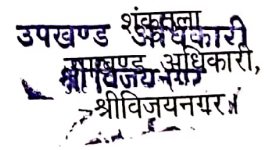 शंकुतला
उपखण्ड अधिकारी
उपखण्ड अधिकारी,
श्रीविजयनगर
श्रीविजयनगर।